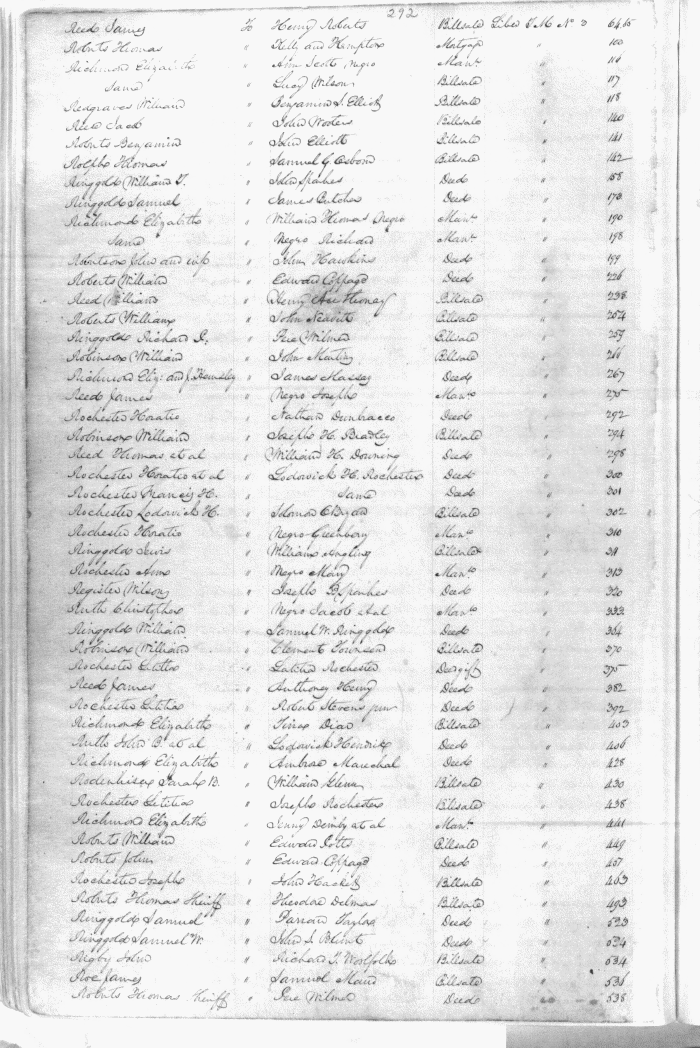 292
Reed James To Henry Roberts Billsale Liber T M No 3 64,65
Roberts Thomas " Kelly and Hempton Mortgage " 100
Richmond Elizabeth " Ann Scott Negro Manu. " 116
Same " Lucy Wilson Billsale " 117
Redgraves William " Benjamin S. Elliott Billsale " 118
Reed Jacob " John Wooters Billsale " 140
Roberts Benjamin " John Elliott Billsale " 141
Rolph Thomas " Samuel G. Osborn Billsale " 142
Ringgold William T. " John Sparkes Deed " 158
Ringgold Samuel " James Butcher Deed " 173
Richmond Elizabeth " William Thomas Negro Manu. " 190
Same " Negro Richard Manu. " 198
Robertson John and wife " John Hawkins Deed " 199
Roberts William " Edward Coppage Deed " 226
Reed William " Henry Billsale " 238
Roberts William " John Billsale " 254
Ringgold Richard G. " Pere Wilmer Billsale " 259
Robinson William " John Martin Billsale " 266
Richmond Eliz: and J. Hemsley " James Massey Deed " 267
Reed James " Negro Joseph Manu. " 275
Rochester Horatio " Nathan Dunbracco Deed " 292
Robinson William " Joseph H. Bradley Billsale " 294
Reed Thomas et al " William H. Downing Deed " 298
Rochester Horatio et al " Lodowick H. Rochester Deed " 300
Rochester Francis H. " Same Deed " 301
Rochester Lodowick H. " Billsale " 302
Rochester Horatio " Negro Greenbury Manu. " 310
Ringgold Lewis " William Billsale " 311
Rochester Ann " Negro Mary Manu. " 313
Register Wilson " Joseph B. Sparkes Deed " 320
Ruth Christopher " Negro Jacob et al Manu. " 333
Ringgold William " Samuel W. Ringgold Deed " 364
Robinson William " Clement Billsale " 370
Rochester Letitia " Rochester Deed gift " 375
Reed James " Anthony Henry Deed " 382
Rochester Letitia " Robert Stevens junr Deed " 392
Richmond Elizabeth " Billsale " 403
Ruth John B. et al " Lodowick Hendrix Deed " 406
Richmond Elizabeth " Ambrose Marechal Deed " 428
Rodenhiser Sarah B. " William Glenn Billsale " 430
Rochester Letitia " Joseph Rochester Billsale " 438
Richmond Elizabeth " Jenny Demby et al Manu. " 441
Roberts William " Edward Billsale " 449
Roberts John " Edward Coppage Deed " 457
Rochester Joseph " John Hackett Billsale " 463
Roberts Thomas Sheriff " Theodore Delmas Billsale " 493
Ringgold Samuel " Taylor Deed " 523
Ringgold Samuel W. " John S. Blunt Deed " 524
Rigby John " Richard T. Wolfolk Billsale " 534
Roe James " Samuel Billsale " 536
Roberts Thomas Sheriff " Pere Wilmer Deed " 538